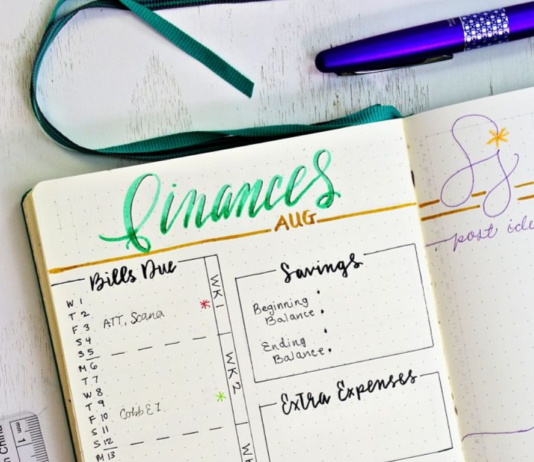 Finances
AUG
Bills Due
W 1
T 2
F 3 ATT, Scana
S 4
S 5
M 6
T 7
W 8
T 9
F 10 Cobb EZ
S 11
S 12
M 13
WK 1
WK 2
Savings
Beginning
Balance
Ending
Balance
Extra Expenses
post ide
China